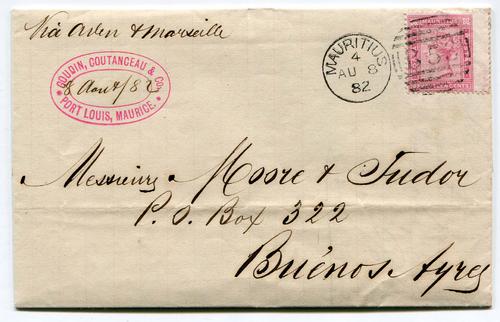 Via Aden & Marseille
GOUDIN, COUTANCEAU & Co.
8 Août/82
PORT LOUIS, MAURICE.
MAURITIUS
4
AU 8
82
MAURITIUS
Messieurs Moore & Tudor
P.O. Box 322
Buénos Ayres